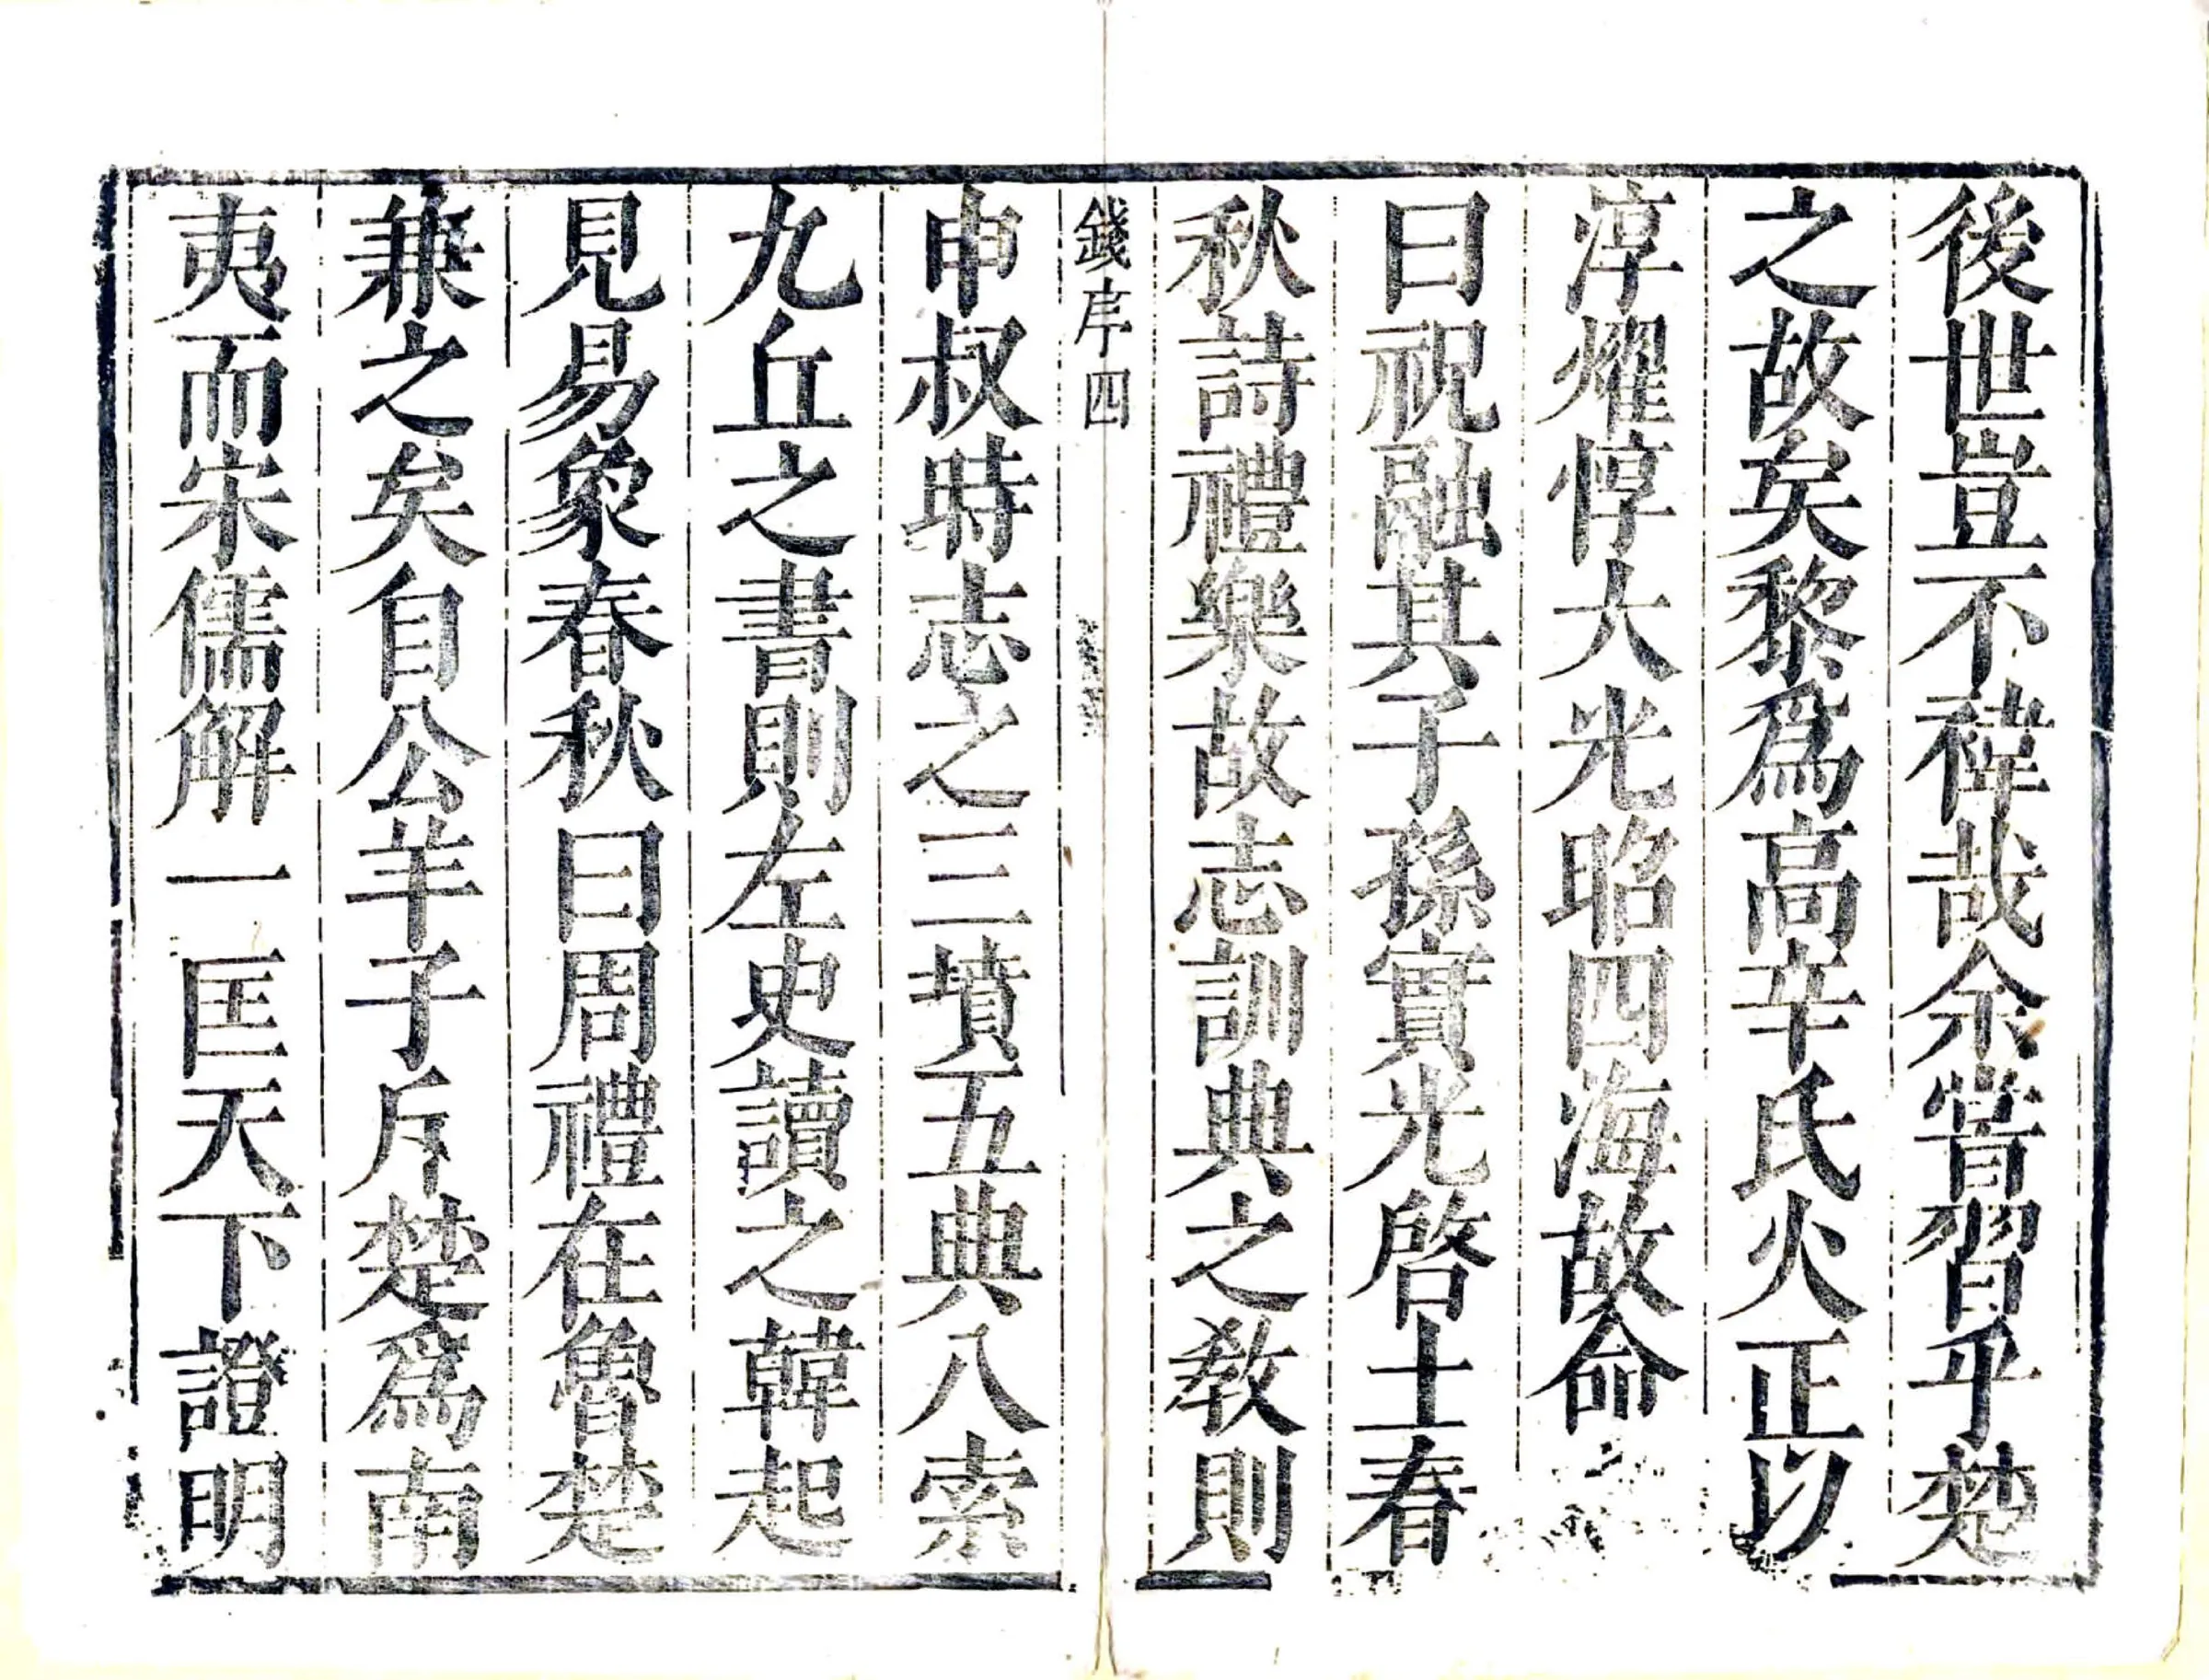 後世豈不禕哉余嘗習乎楚
之故矣黎爲高辛氏火正以
淳燿惇大光昭四海故命
曰祝融其子孫實光啓土春
秋詩禮樂故志訓典之教則
錢序四
申叔時志之三墳五典八索
九丘之書則左史讀之韓起
見易象春秋曰周禮在魯楚
兼之矣自公羊子斥楚爲南
夷而宋儒解一匡天下證明